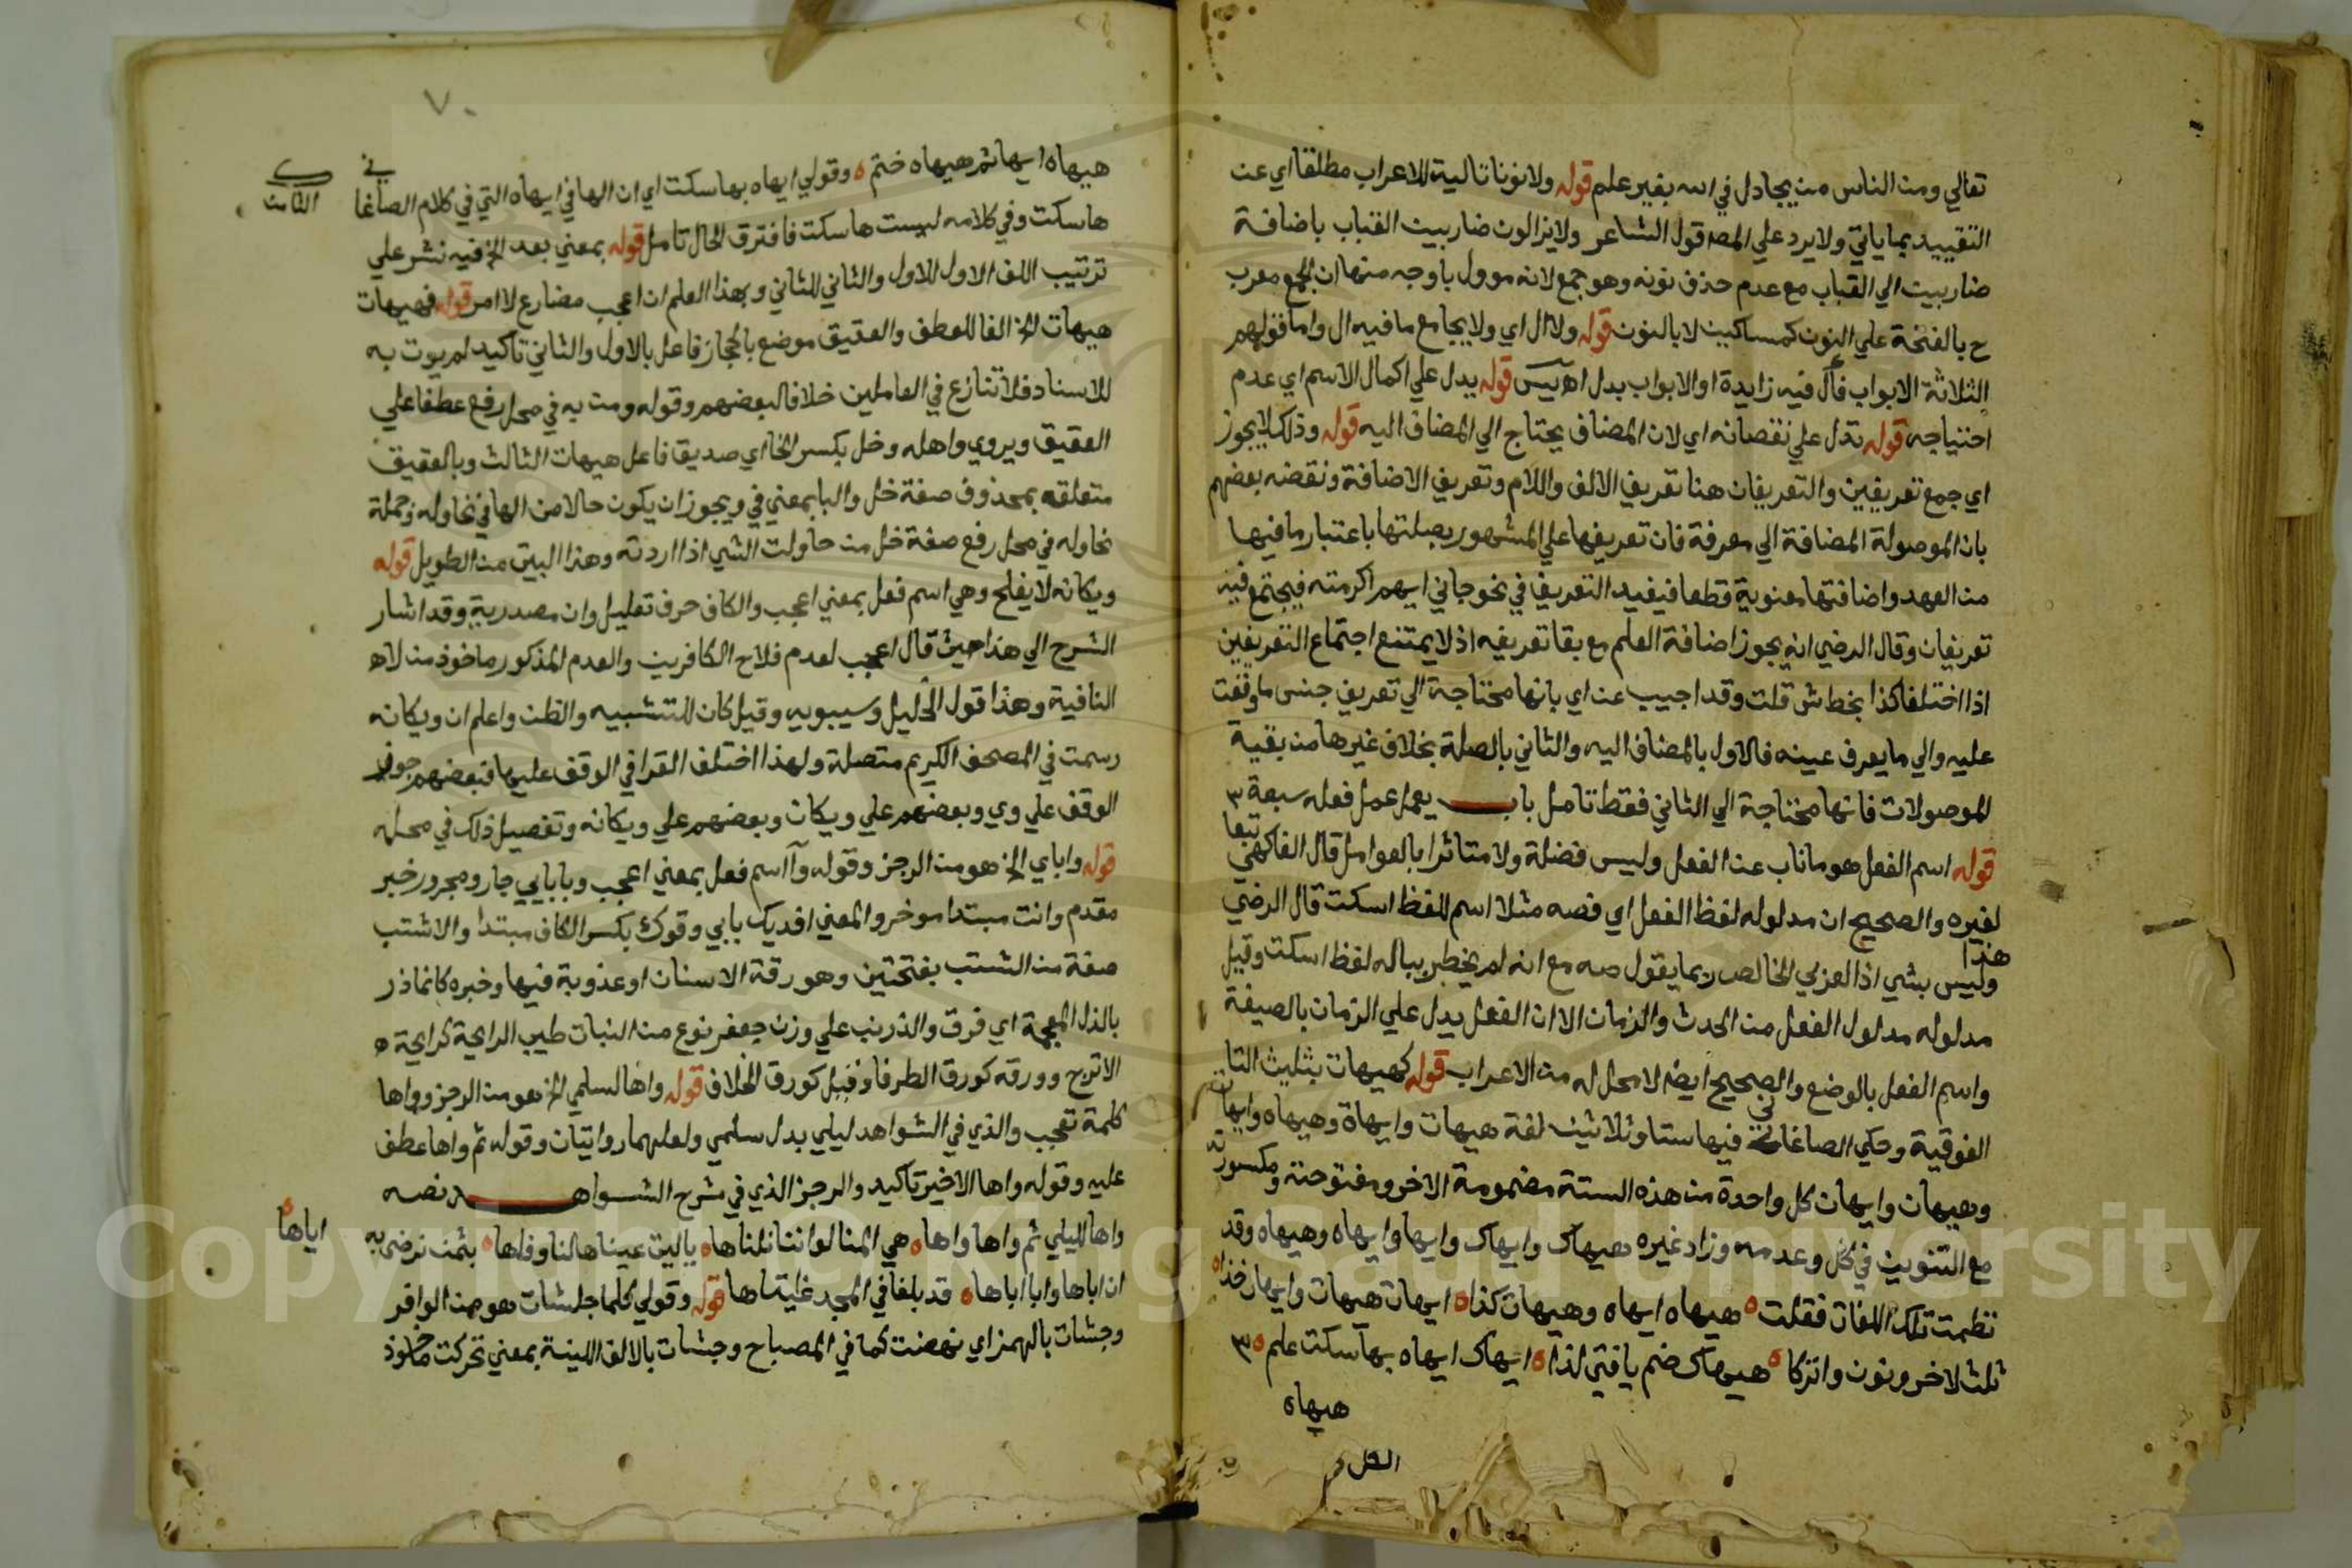 تعالي ومن الناس من يجادل في الله بغير علم قوله ولا نونا تالية للاعراب مطلقا اي عن
التقييد بما ياتي ولا يرد علي المصه قول الشاعر ولا يزالون ضاربين القباب باضافة
ضاربين الي القباب مع عدم حذف نونه وهو جمع لانه موول باوجه منها ان الجمع معرب
ح بالفتحة علي النون كمساكين لا بالنون قوله ولا ال اي ولا يجامع ما فيه ال واما قولهم
الثلاثة الابواب فال فيه زايدة او الابواب بدل اه يس قوله يدل علي اكمال الاسم اي عدم
احتياجه قوله تدل علي نقصانه اي لان المضاف يحتاج الي المضاف اليه قوله وذلك لا يجوز
اي جمع تعريفين والتعريفان هنا تعريف الالف واللام وتعريف الاضافة ونقضه بعضهم
بان الموصولة المضافة الي معرفة فان تعريفها علي المشهور بصلتها باعتبار ما فيها
من العهد واضافتها معنوية قطعا فيفيد التعريف في نحو جاني ايهم اكرمته فيجتمع فيه
تعريفان وقال الرضي انه يجوز اضافة العلم مع بقا تعريفه اذ لا يمتنع اجتماع التعريفين
اذا اختلفا كذا بخط ش قلت وقد اجيب عن اي بانها محتاجة الي تعريف جنس ما وقعت
عليه والي ما يعرف عينه فالاول بالمضاف اليه والثاني بالصلة بخلاف غيرها من بقية
الموصولات فانها محتاجة الي الثاني فقط تامل باب يعمل عمل فعله سبعة ٣
قوله اسم الفعل هو ما ناب عن الفعل وليس فضلة ولا متاثرا بالعوامل قال الفاكهي تبعا
لغيره والصحيح ان مدلوله لفظ الفعل اي فصه مثلا اسم للفظ اسكت قال الرضي
وليس هذا بشي اذ العربي الخالص ربما يقول صه مع انه لم يخطر بباله لفظ اسكت وقيل
مدلوله مدلول الفعل من الحدث والزمان الا ان الفعل يدل علي الزمان بالصيغة
واسم الفعل بالوضع والصحيح ايضا لا محل له من الاعراب قوله كهيهات بثليث التا
الفوقية وحكي الصاغاني فيها ستا وثلاثين لغة هيهات وايهاة وهيهاه وايهاه
وهيهان وايهان كل واحدة من هذه الستة مضمومة الاخر ومفتوحته ومكسورته
مع التنوين في كل وعدمه وزاد غيره هيهاك وايهاك وايها وايهاه وهيهاه وقد
نظمت تلك اللغات فقلت ه هيهاه ايهاه وهيهان كذا ه ايهات هيهات وايهان خذا ه
ثلث لاخر ونون واتركا ه هيهاك ضم يا فتي لذا ه ايهاك ايهاه بها سكت علم ه ٣
هيهاه
٧٠
هيهاه ايها ثم هيهاه ختم ه وقولي ايهاه بها سكت اي ان الها في ايهاه التي في كلام الصاغاني
الثامن
ها سكت وفي كلامه ليست ها سكت فافترق الحال تامل قوله بمعني بعد الخ فيه نشر علي
ترتيب اللف الاول للاول والثاني للثاني وبهذا العلم ان اعجب مضارع لا امر قوله فهيهات
هيهات الخ الفا للعطف والعقيق موضع بالحجاز فاعل بالاول والثاني تاكيد لم يوت به
للاسناد فلا تنازع في العاملين خلافا لبعضهم وقوله ومن به في محل رفع عطفا علي
العقيق ويروي واهله وخل بكسر الخا اي صديق فاعل هيهات الثالث وبالعقيق
متعلقه بمحذوف صفة خل والبا بمعني في ويجوز ان يكون حالا من الها في نحاوله وجملة
نحاوله في محل رفع صفة خل من حاولت الشي اذا اردته وهذا البيت من الطويل قوله
ويكانه لا يفلح وهي اسم فعل بمعني اعجب والكاف حرف تعليل وان مصدرية وقد اشار
الشرح الي هذا حيث قال اعجب لعدم فلاح الكافرين والعدم المذكور ماخوذ من لا ه
النافية وهذا قول الخليل وسيبويه وقيل كان للتشبيه والظن واعلم ان ويكانه
رسمت في المصحف الكريم متصلة ولهذا اختلف القرا في الوقف عليها فبعضهم جوز
الوقف علي وي وبعضهم علي ويكان وبعضهم علي ويكانه وتفصيل ذلك في محله
قوله وابابي الخ هو من الرجز وقوله وآ اسم فعل بمعني اعجب وبابابي جار ومجرور خبر
مقدم وانت مبتدا موخر والمعني افديك بابي وقوك بكسر الكاف مبتدا والاشنب
صفة من الشنب بفتحتين وهو رقة الاسنان او عذوبة فيها وخبره كانما ذر
بالذال المعجمة اي فرق والذرنب علي وزن جعفر نوع من النبات طيب الرايحة كرايحة ه
الاترج وورقه كورق الطرفا وقيل كورق الخلاف قوله واها لسلمي الخ هو من الرجز وواها
كلمة تعجب والذي في الشواهد ليلي بدل سلمي ولعلهما روايتان وقوله ثم واها عطف
عليه وقوله واها الاخير تاكيد والرجز الذي في شرح الشواهد نصه
واها لليلي ثم واها واها ه هي المنا لو اننا نلناها ه يا ليت عيناها لنا وفاها ه بثمن نرضي به اباها ه
ان اباها وابا اباها ه قد بلغا في المجد غايتاها قوله وقولي كلما جشات هو من الوافر
وجشات بالهمز اي نهضت كما في المصباح وجشات بالالف اللينة بمعني تحركت ماخوذ